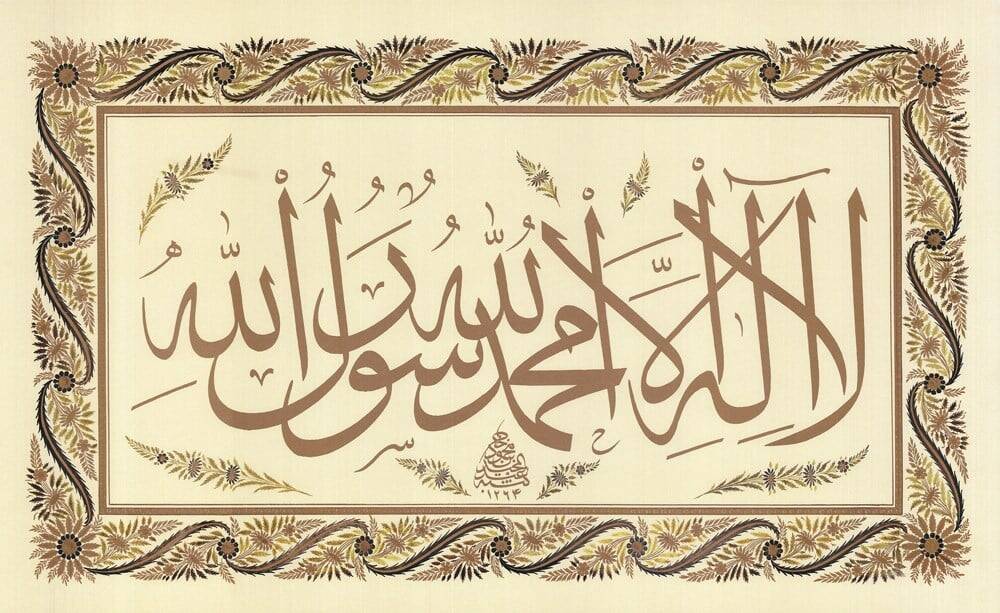 لا إله إلا الله محمد رسول الله
١٢٦٤